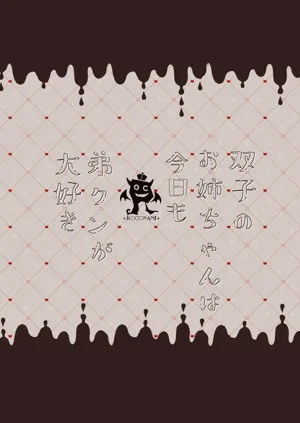 双子の
お姉ちゃんは
今日も
弟クンが
大好き
KOCOMANI